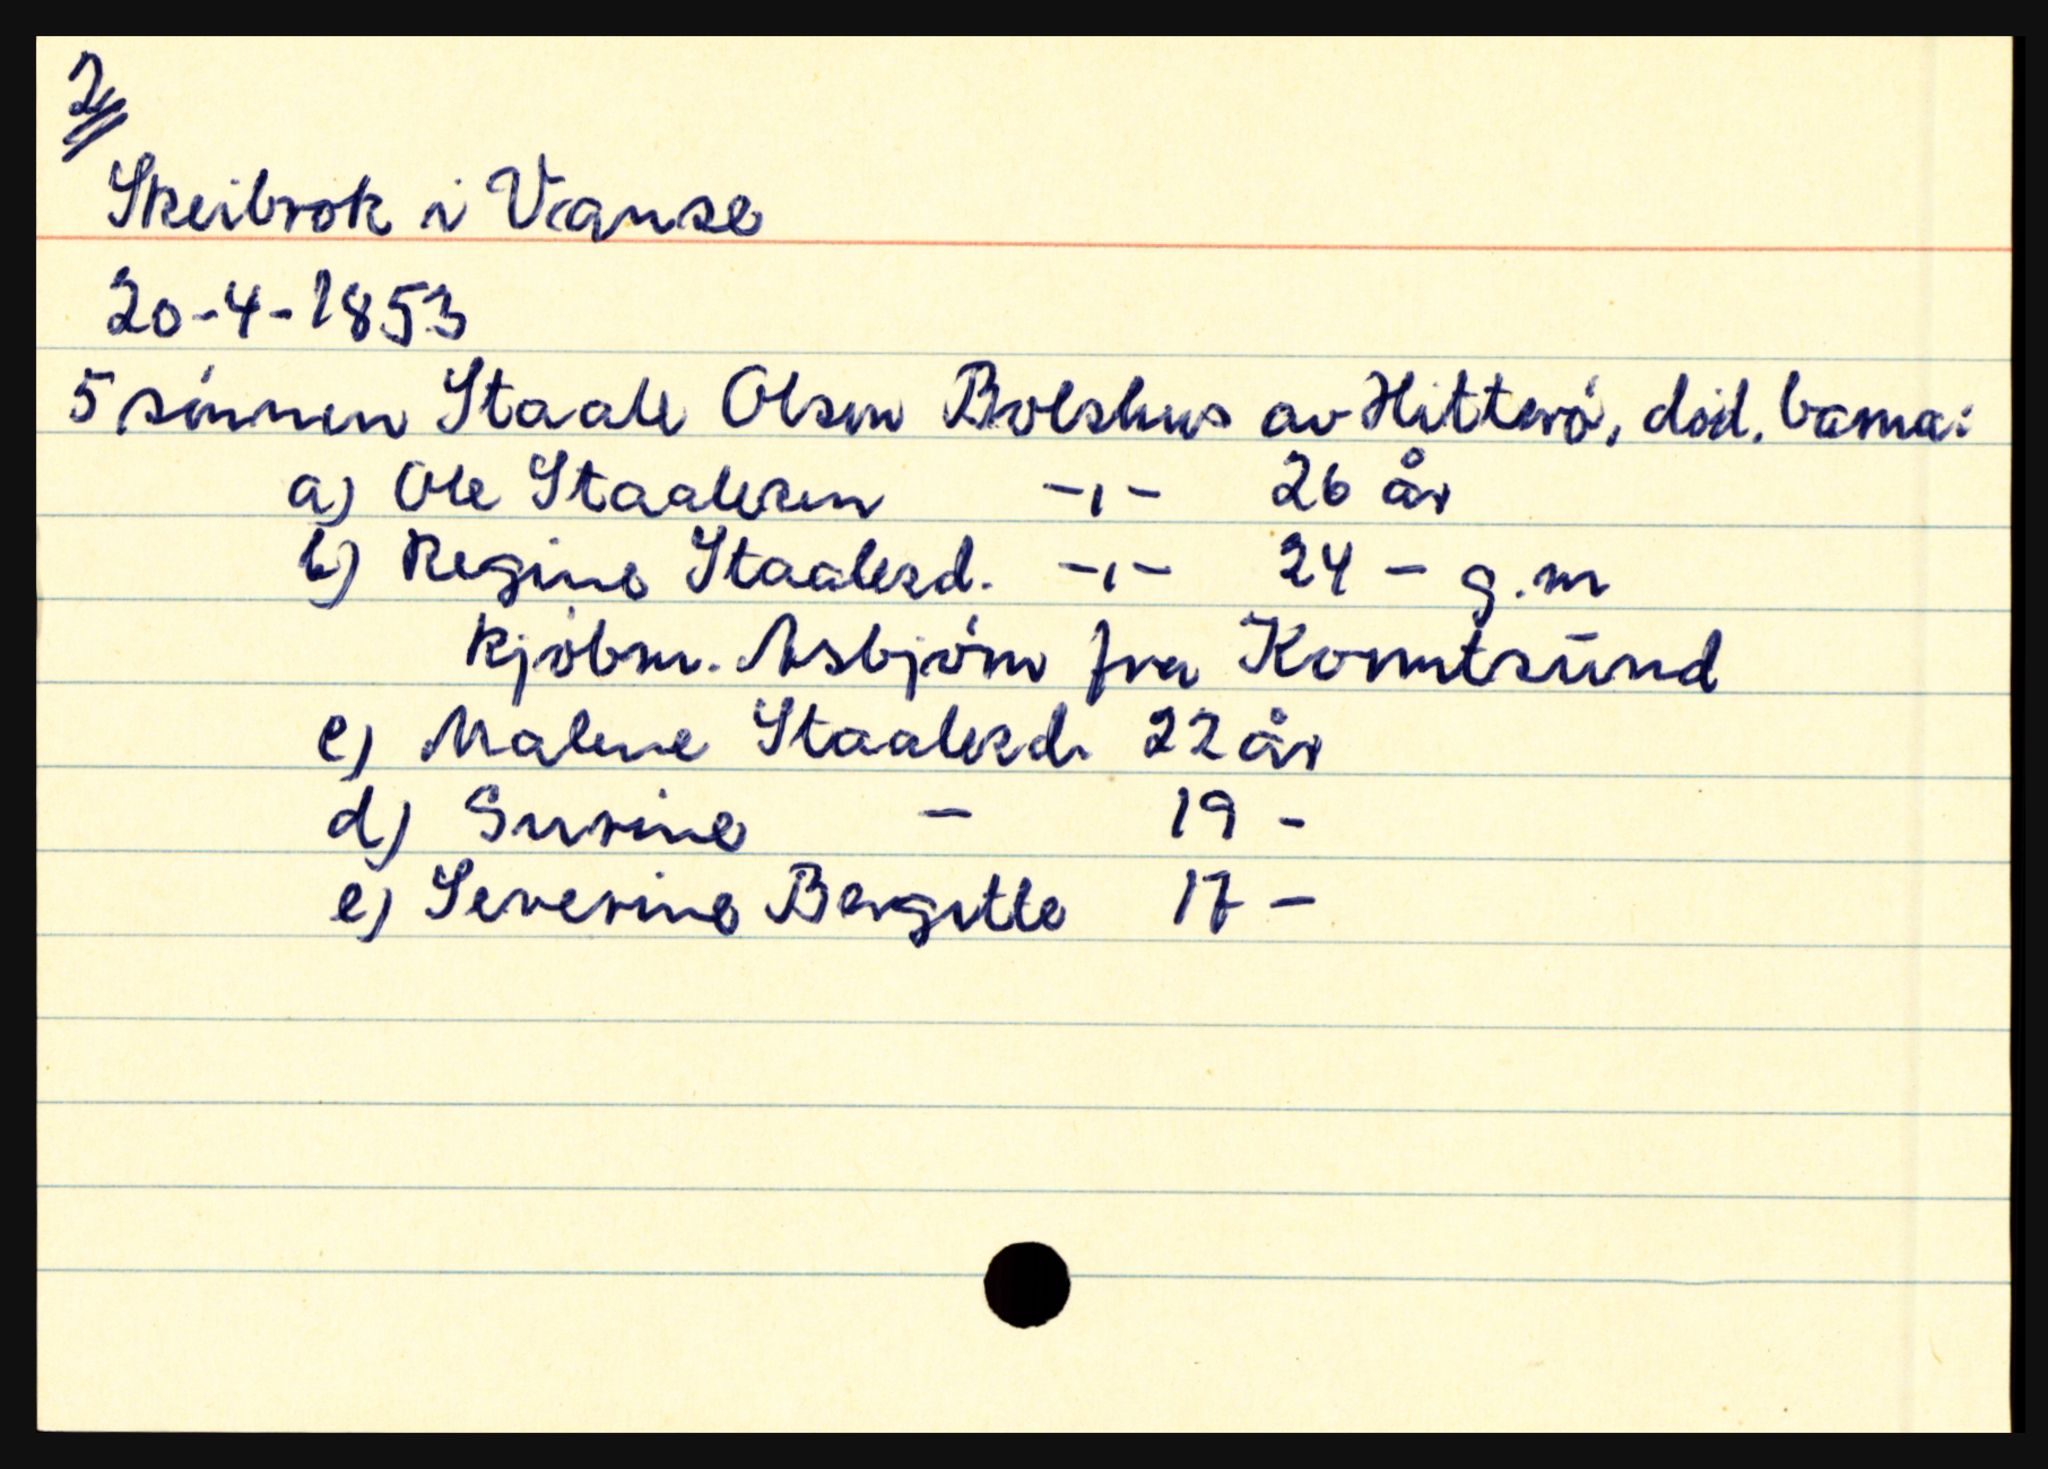 2
Skeibrok i Vanse
20-4-1853
5 sønnen Staale Olsen Bolshus av Hitterø, død, barna:
a) Ole Staalesen -,- 26 år
b) Regine Staalesd. -,- 24 - g.m
kjøbm. Asbjørn fra
c) Malene Staalesd. 22 år
d) - 19 -
e) Severine Bergitte 17 -